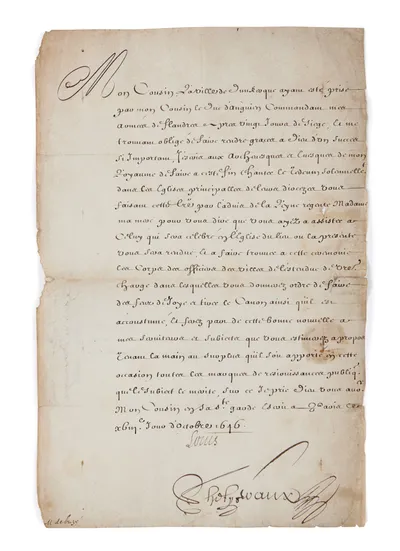 Mon Cousin La ville de Dunkerque ayant esté prise
par mon Cousin le Duc d'anguien Commandant mes
armées de flandres apres vingt Jours de siege, Et me
trouvant obligé de faire rendre graces a Dieu d'un succez
si Important, J'escris aux Archevesques et Evesques de mon
Royaume de faire a cette fin chanter le Tedeum solennelle
dans les Eglises principalles de leurs dioceses Vous
faisant cette lre par l'aduis de la Reyne regente Madame
ma mere pour vous dire que vous ayez a assister a
Celuy qui sera celebré en l'Eglise du lieu ou la presente
vous sera rendue et a faire trouver a cette ceremonie
les Corps des officiers des villes de l'estendue de vre
charge dans lesquelles vous donnerez ordre de faire
des feux de Joye et tirer le Canon ainsi qu'il est
accoustumé, Et faire part de cette bonne nouvelle a
mes serviteurs et subiects que vous estimerez a propos
Tenant la main au surplus qu'il soit apporté en cette
occasion toutes les marques de resiouissances publiq
que le subiect le merite, sur ce Je prie Dieu vous avoir
Mon Cousin en sa ste garde Escrit a
xviii Jour d'Octobre 1646
Louis